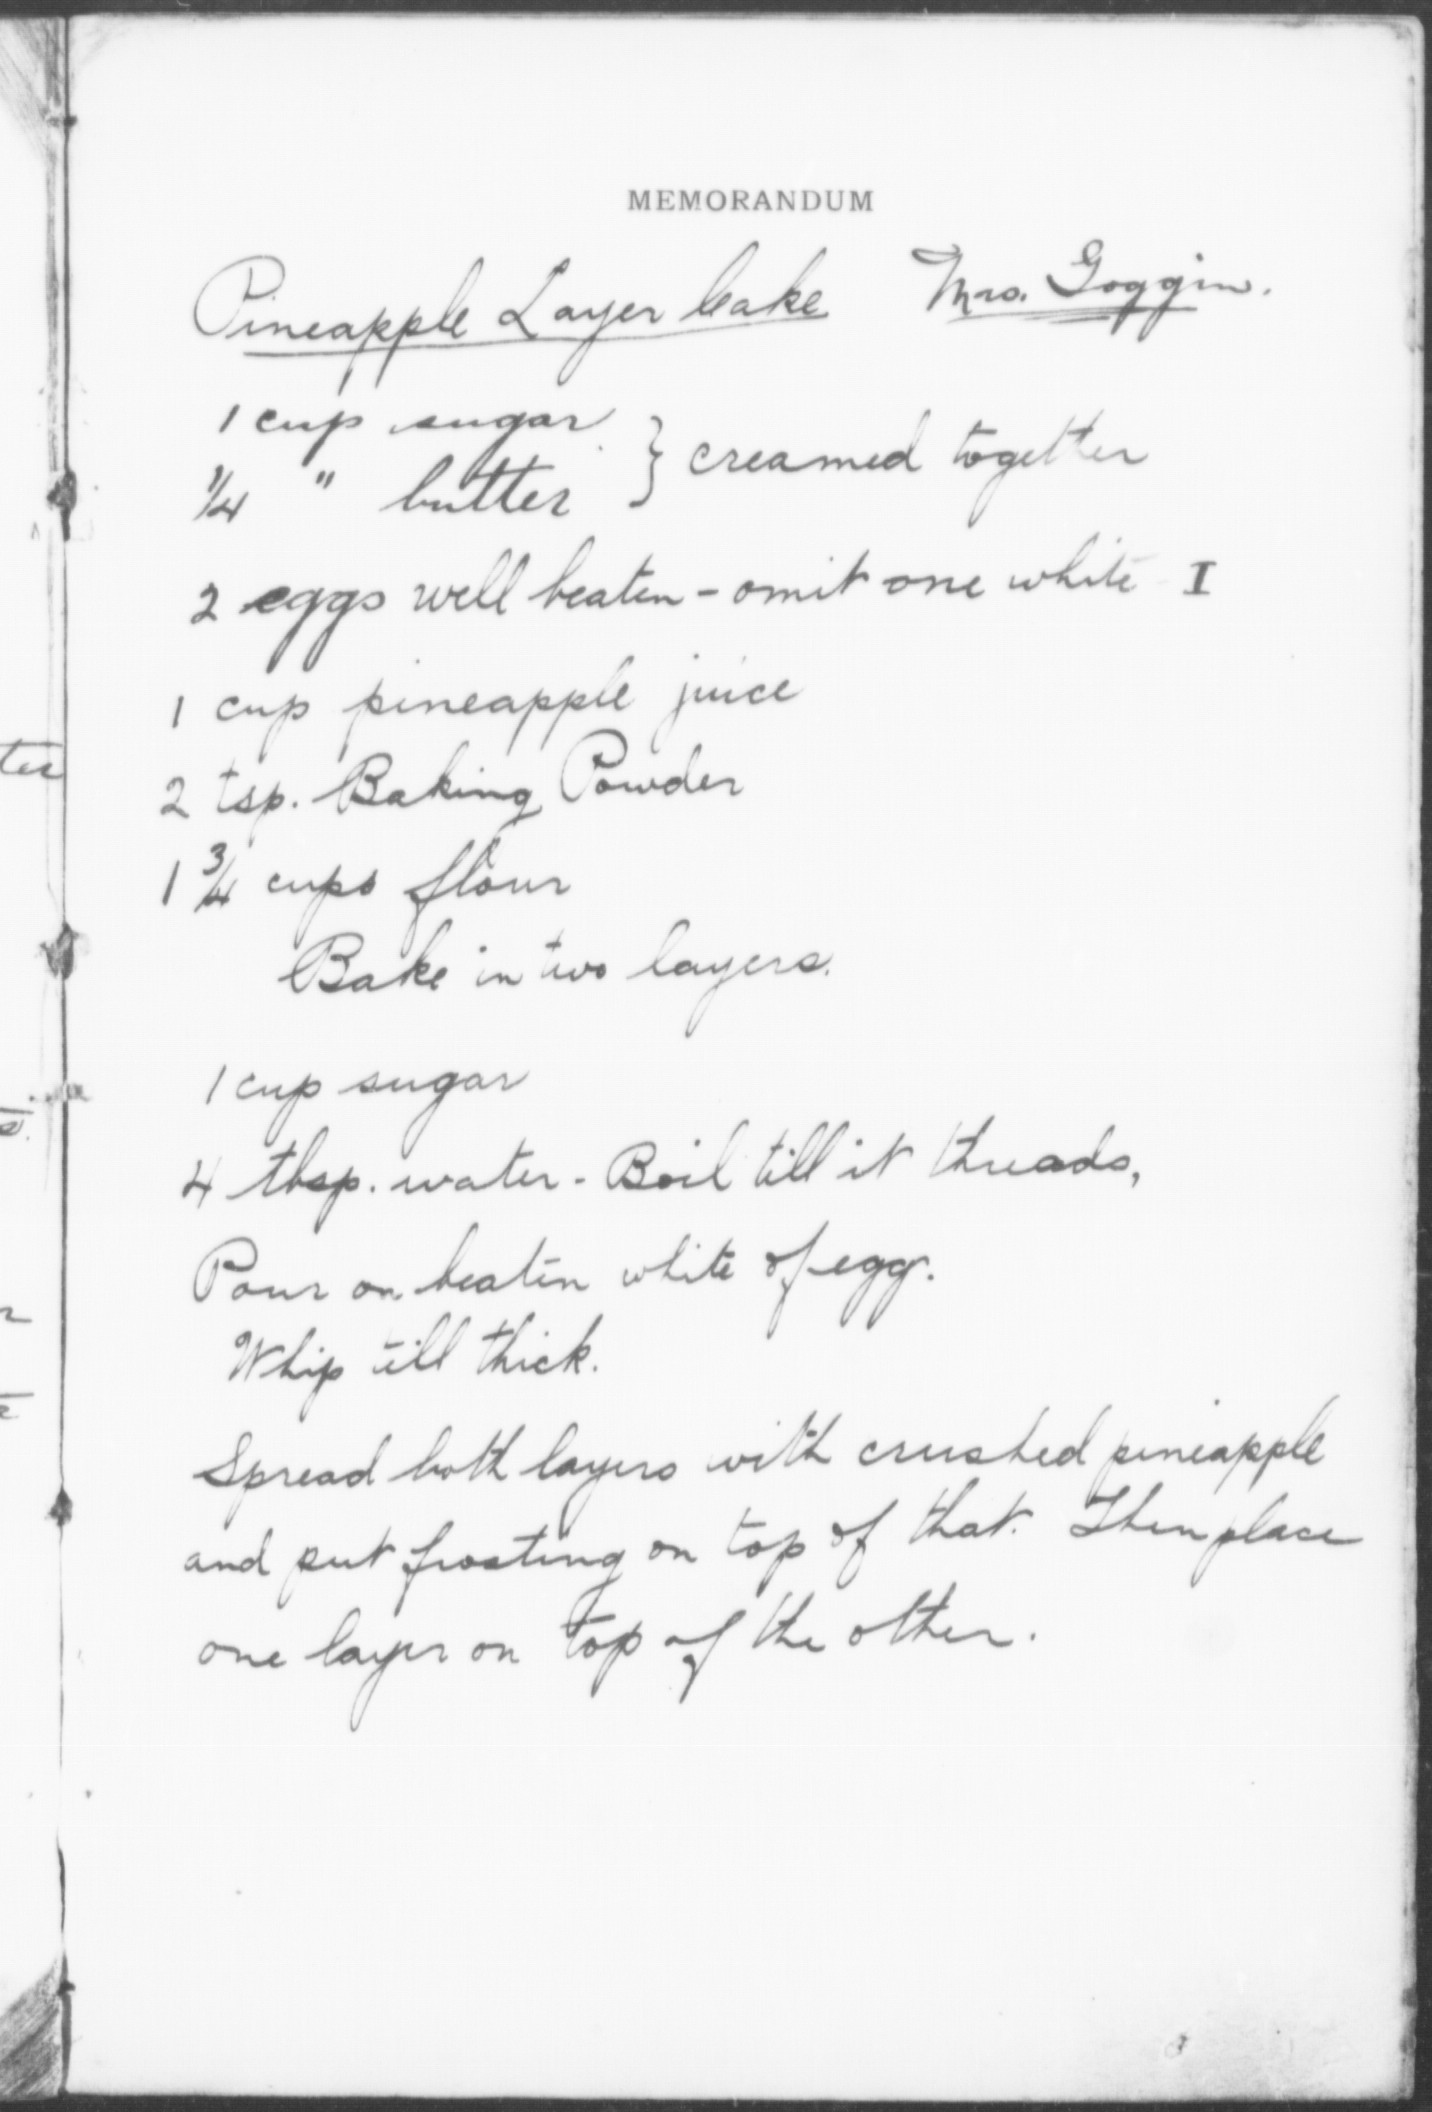 MEMORANDUM
Pineapple Layer Cake Mrs. Goggin.
1 cup sugar
} creamed together
1/4 " butter
2 eggs well beaten - omit one white I
1 cup pineapple juice
2 tsp. Baking Powder
1 3/4 cups flour
Bake in two layers.
1 cup sugar
4 tbsp. water - Boil till it threads,
Pour on beaten white of egg.
Whip till thick.
Spread both layers with crushed pineapple
and put frosting on top of that. Then place
one layer on top of the other.